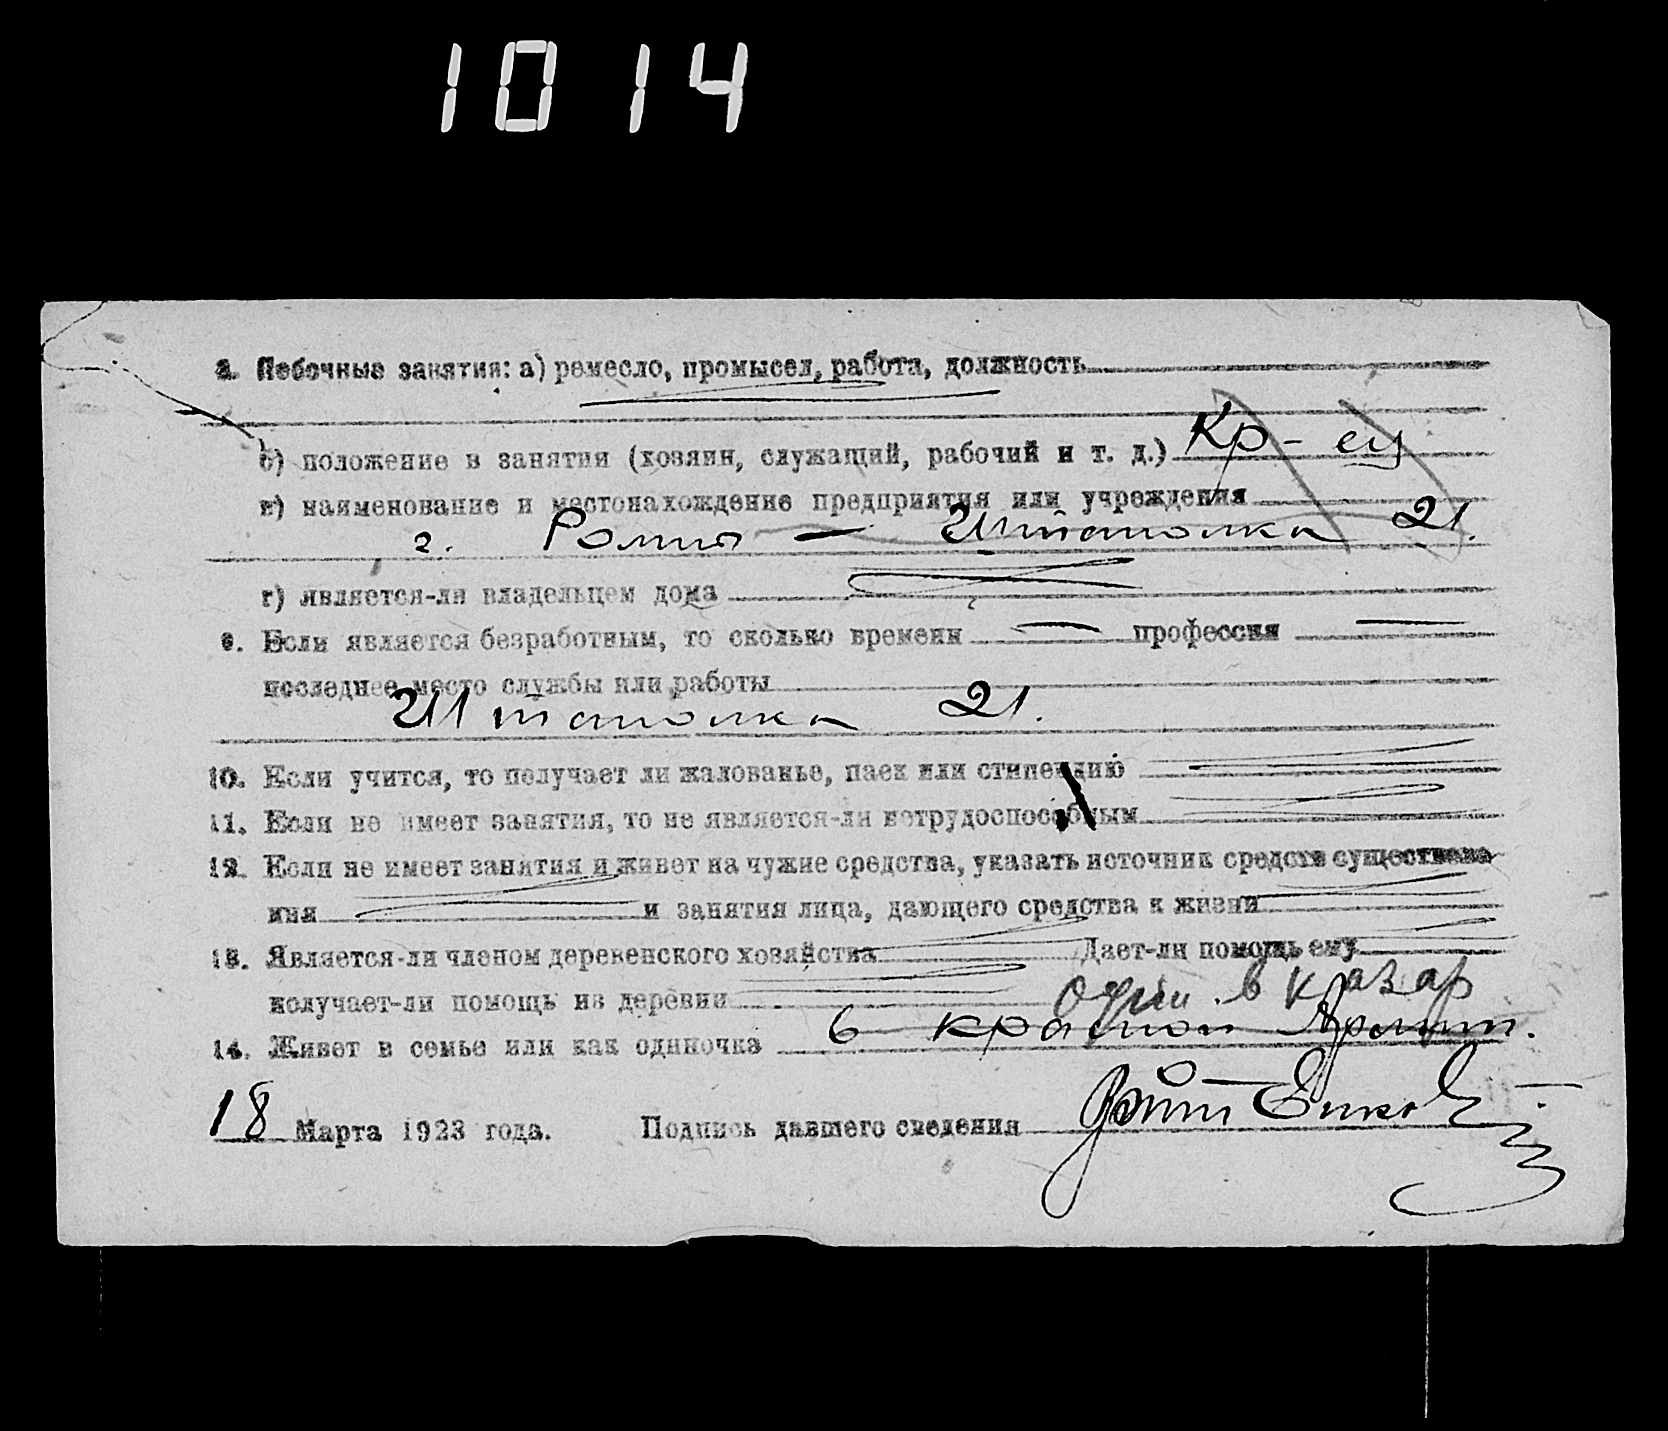 1014
8. Побочные занятия: а) ремесло, промысел, работа, должность
б) положение в занятии (хозяин, служащий, рабочий и т. д.) Кр-ец
в) наименование и местонахождение предприятия или учреждения
г. Ромны — Штаполка 21.
г) является-ли владельцем дома
9. Если является безработным, то сколько времени — профессия —
последнее место службы или работы
Штаполка 21.
10. Если учится, то получает ли жалованье, паек или стипендию
11. Если не имеет занятия, то не является-ли нетрудоспособным
12. Если не имеет занятия и живет на чужие средства, указать источник средств существова
ния и занятия лица, дающего средства к жизни
13. Является-ли членом деревенского хозяйства Дает-ли помощь ему
получает-ли помощь из деревни
Один в казар
14. Живет в семье или как одиночка в красной Армии.
18 Марта 1923 года. Подпись давшего сведения